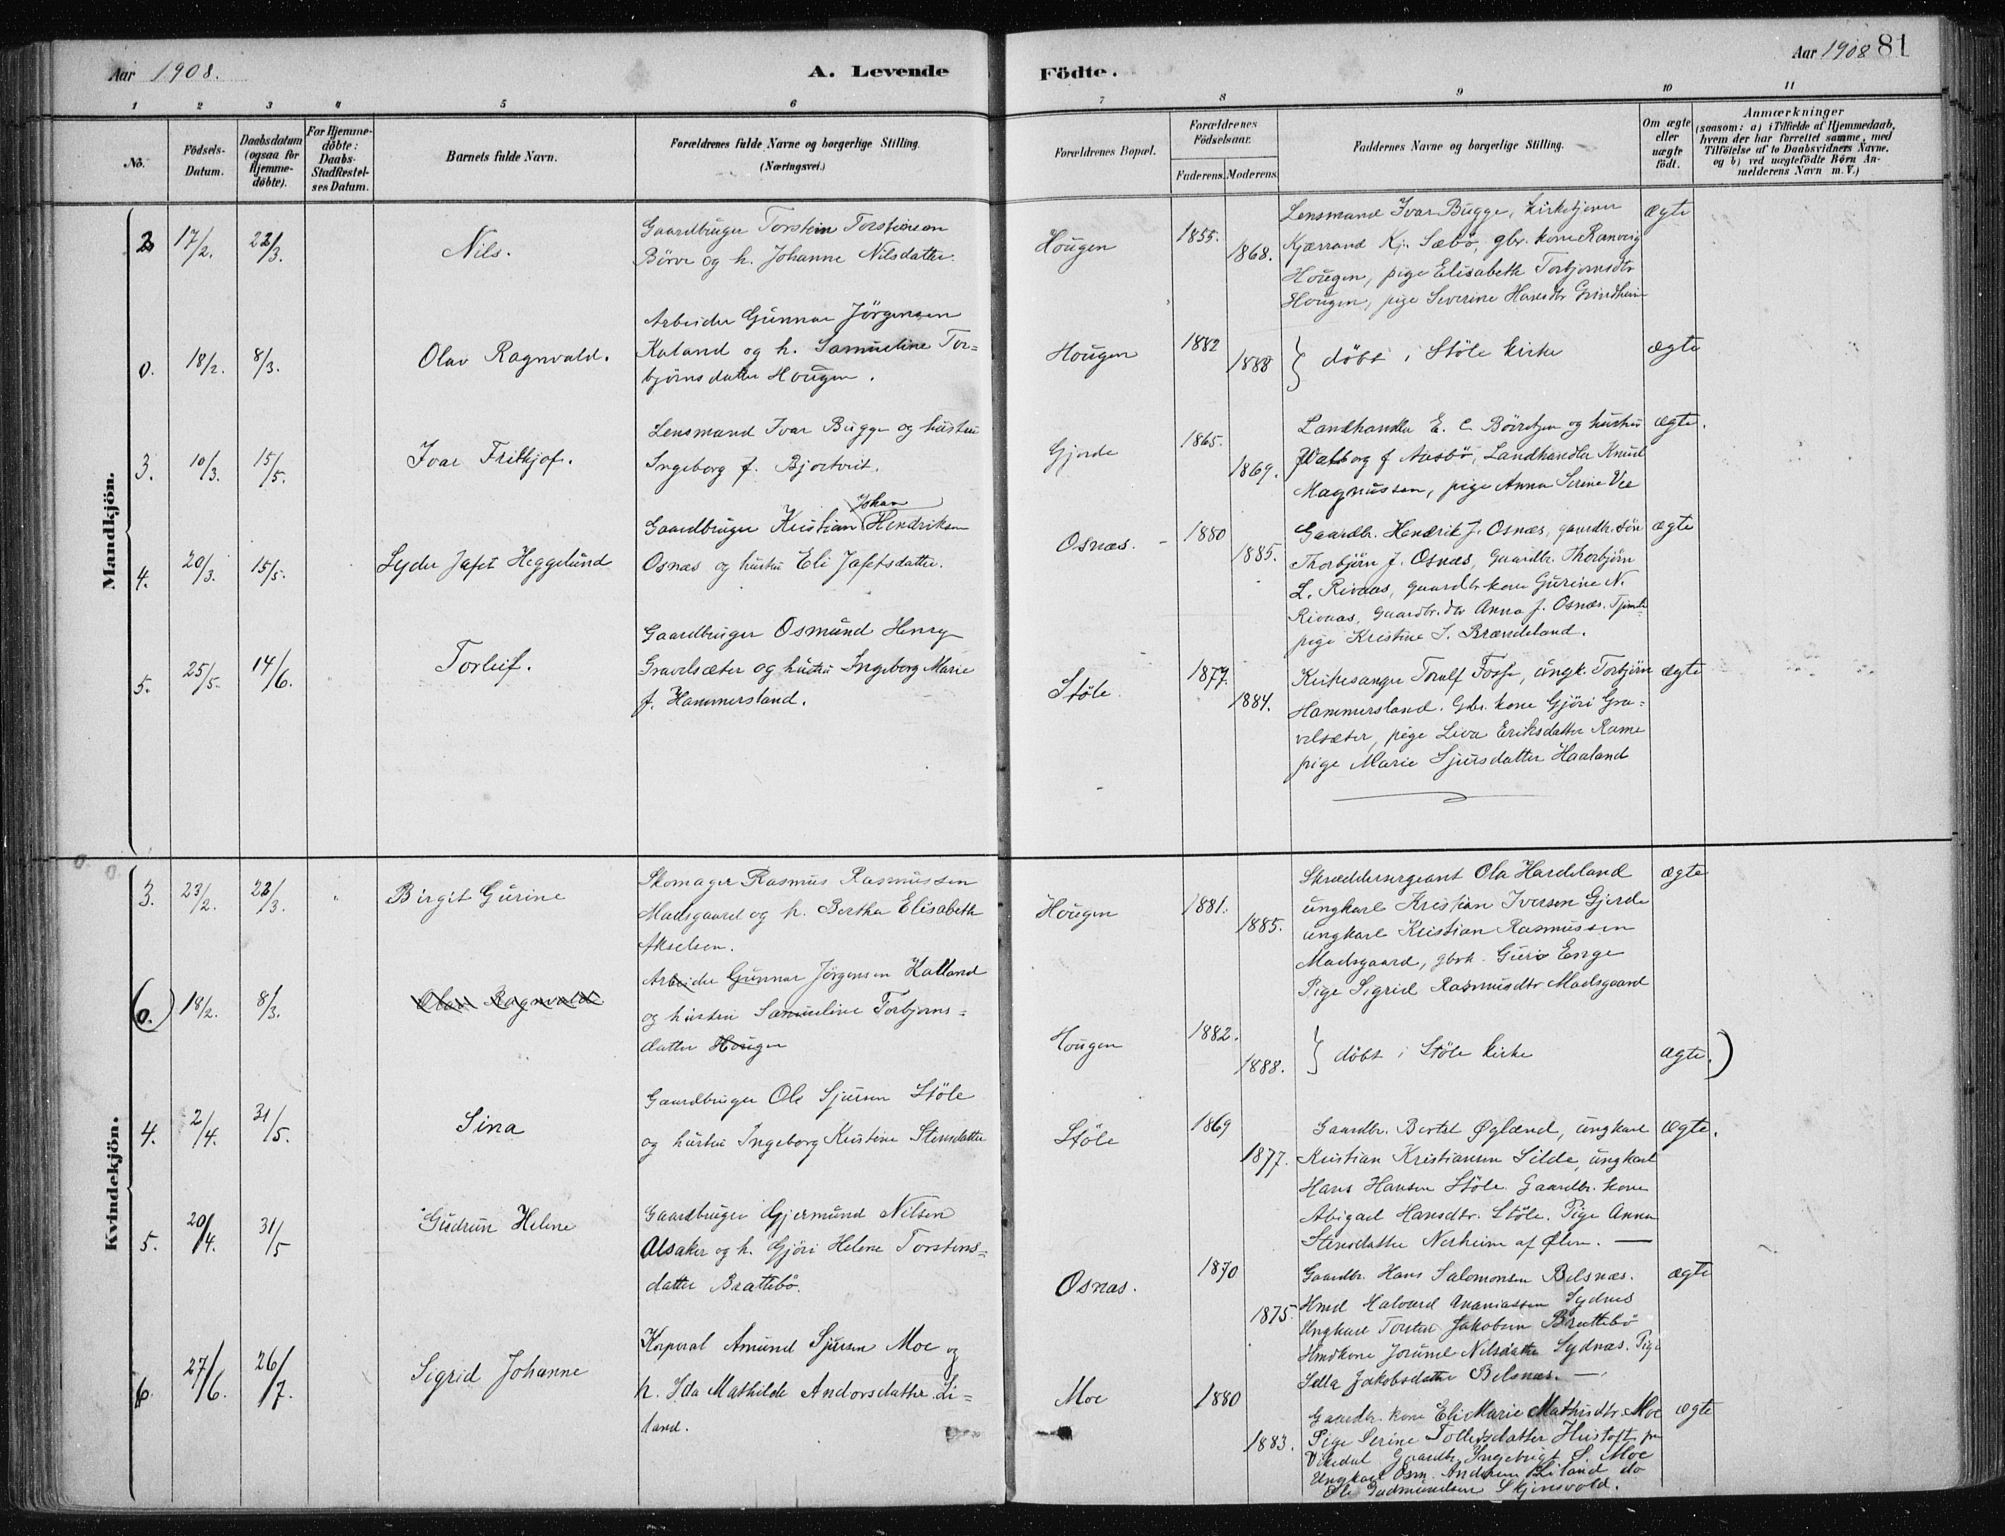 Aar 1908.
A. Levende
Födte.
Aar 1908 81
1 2 3 4 5 6 7 8 9 10 11
No.
Födsels-
Datum.
Daabsdatum
(ogsaa for
Hjemme-
döbte).
For Hjemme-
döbte:
Daabs-
Stadfæstel-
ses Datum.
Barnets fulde Navn.
Forældrenes fulde Navne og borgerlige Stilling.
(Næringsvei.)
Forældrenes Bopæl.
Forældrenes
Födselsaar.
Faderens. Moderens.
Faddernes Navne og borgerlige Stilling.
Om ægte
eller
uægte
födt.
Anmærkninger
(saasom: a) i Tilfælde af Hjemmedaab,
hvem der har forrettet samme, med
Tilföielse af to Daabsvidners Navne.
og b) ved uægtefödte Börn An-
melderens Navn m. V.)
Mandkjön.
2 17/2. 22/3. Nils.
Gaardbruger Torstein Torsteinsen
Börve og h. Johanne Nilsdatter.
Hougen 1855. 1868.
Lensmand Ivar Bugge, kirketjener
Kjærrand Kj. Sæbö, gbr. kone Ranveig
Hougen, pige Elisabeth Torbjørnsdtr
Hougen, pige Severine Hansdtr Grindheim
ægte
0. 18/2. 8/3. Olav Ragnvald.
Arbeider Gunnar Jörgensen
Kaland og h. Samueline Tor-
bjørnsdatter Hougen.
Hougen 1882 1888
} döbt i Stöle kirke
ægte
3. 10/3. 15/5. Ivar Frithjof.
Lensmand Ivar Bugge og hustru
Ingeborg f. Bjortveit.
Gjerde 1865. 1869.
Landhandler E. C. Böiretzen og hustru
Walborg f Aasbö, Landhandler Knud
Magnussen, pige Anna Serine Vee
ægte.
4. 20/3. 15/5. Lyder Jafet Heggelund
Johan
Gaardbruger Kristian Hendriksen
Osnæs og hustru Eli Jafetsdatter.
Osnæs. 1880 1885.
Gaardbr. Hendrik J. Osnæs, gaardbr. sön
Thorbjörn J. Osnæs, Gaardbr. Thorbjörn
L. Rivnæs, gaardbr. kone Gurine N.
Rivnæs, Gaardbr. dtr Anna J. Osnæs. Tjeneste-
pige Kristine S. Brændeland.
ægte
5. 25/5. 14/6. Torleif.
Gaardbruger Osmund Henry
Gravelsæter og hustru Ingeborg Marie
f. Hammersland.
Stöle. 1877. 1884.
Kirkesanger Torulf Fosse, ungk. Torbjörn
Hammersland. Gbr. kone Gjöri Gra-
velsæter, pige Liva Eriksdatter Rame
pige Marie Sjursdatter Haaland
ægte
Kvindekjön.
3. 23/2. 22/3. Birgit Gurine
Skomager Rasmus Rasmussen
Madsgaard og h. Bertha Elisabeth
Akselsen.
Hougen 1881. 1885.
Skræddersergeant Ola Hardeland
ungkarl Kristian Iversen Gjerde
ungkarl Kristian Rasmussen
Madsgaard, gbrk. Guro Enge
Pige Sigrid Rasmusdtr Madsgaard
ægte
(0.) 18/2. 8/3. Olav Ragnvald
Arbeider Gunnar Jörgensen Kalland
og hustru Samueline Torbjørns-
datter Hougen
Hougen 1882. 1888.
} döbt i Stöle kirke
ægte.)
4. 2/4. 31/5. Sina
Gaardbruger Ole Sjursen Stöle
og hustru Ingeborg Kristine Stensdatter
Stöle 1869 1877.
Gaardbr. Bertel Øglænd, ungkarl
Kristian Kristiansen Silde, ungkarl
Hans Hansen Stöle. Gaardbr. kone
Abigael Hansdtr. Stöle. Pige Anna
Stensdatter Nerheim af Ølen.
ægte.
5. 20/4. 31/5 Gudrun Helene
Gaardbruger Gjermund Nilsen
Alsaker og h. Gjöri Helene Torstens-
datter Brattebö.
Osnæs. 1870 1875
Gaardbr. Hans Salomonsen Belsnæs.
Hmd Halvard Ananiassen Sydnes
Ungkarl Torsten Jakobsen Brattebö
Hmdkone Jorunel Nilsdatter Sydnæs. Pige
Sella Jakobsdatter Belsnæs.
ægte
6. 27/6. 26/7. Sigrid Johanne
Korporal Amund Sjursen Moe og
h. Ida Mathilde Andorsdatter Li-
land.
Moe 1880 1883.
Gaardbr. kone Eli Marie Mathisdtr. Moe
Pige Serine Tollefsdatter Hustoft fra
Vikedal Gaardbr. Ingebrigt S. Moe
Ungkarl Osm. Andersen Liland do
Ole Gudmundsen Skjensvold.
ægte